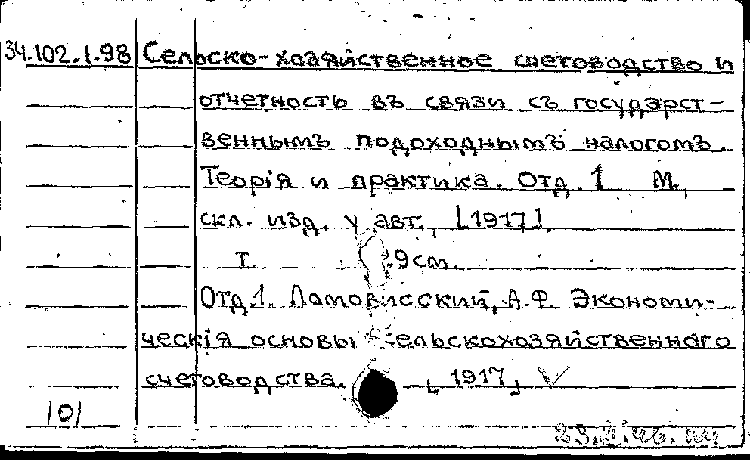 34.102.1.98 Сельско-хозяйственное счетоводство и
отчетность въ связи съ государст-
веннымъ подоходнымъ налогомъ.
Теорія и практика. Отд. 1 М.,
скл. изд. у авт., [1917].
т. 9 см.
Отд 1. Ламовисский, А.Ф. Экономи-
ческія основы сельскохозяйственнаго
счетоводства. [1917]
101